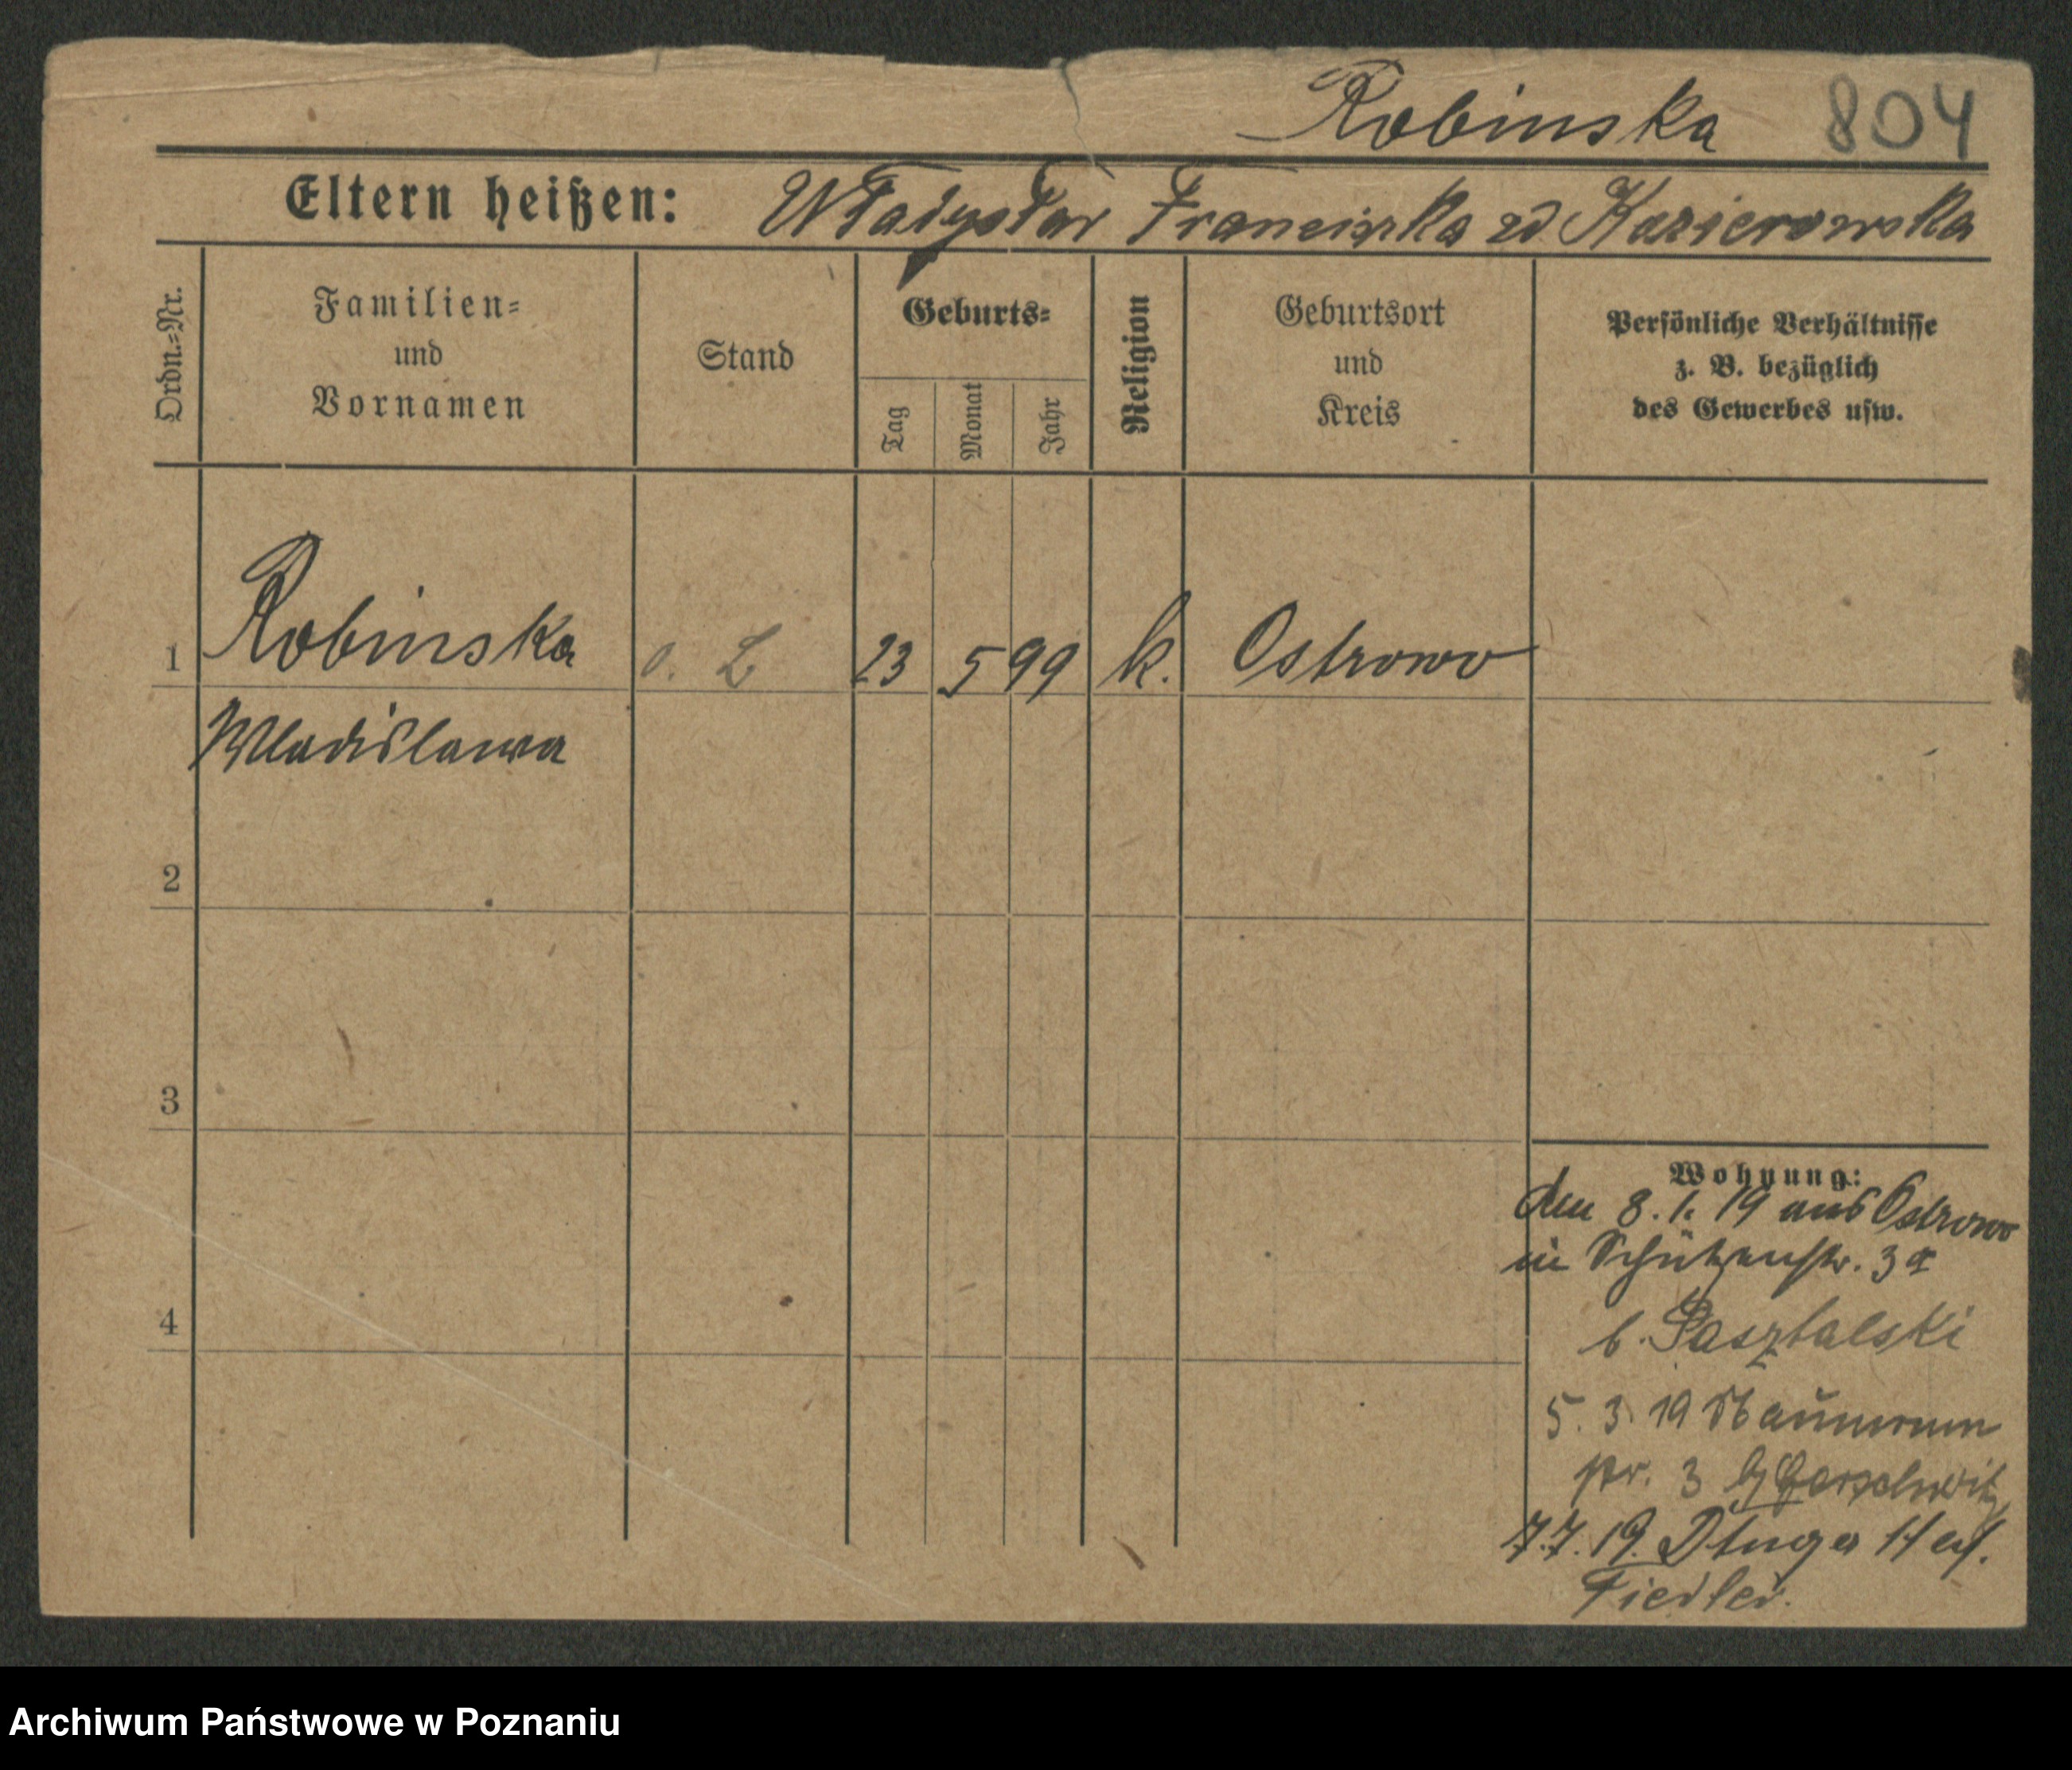 Robinska 804
Eltern heißen: Władysław Franciszka zd Kazierowska
Ordn.-Nr.
Familien-
und
Vornamen
Stand
Geburts-
Tag
Monat
Jahr
Religion
Geburtsort
und
Kreis
Persönliche Verhältnisse
z. B. bezüglich
des Gewerbes usw.
1 Robinska o. L 23 5 99 k. Ostrowo
Wladislawa
2
3
4
Wohnung:
den 8. 1. 19 aus Ostrowo
in Schützenstr. 3a
b. Pasztalski
5. 3. 19 Naumann
str. 3
7.7. 19. Długa 11
Fiedler.
Archiwum Państwowe w Poznaniu